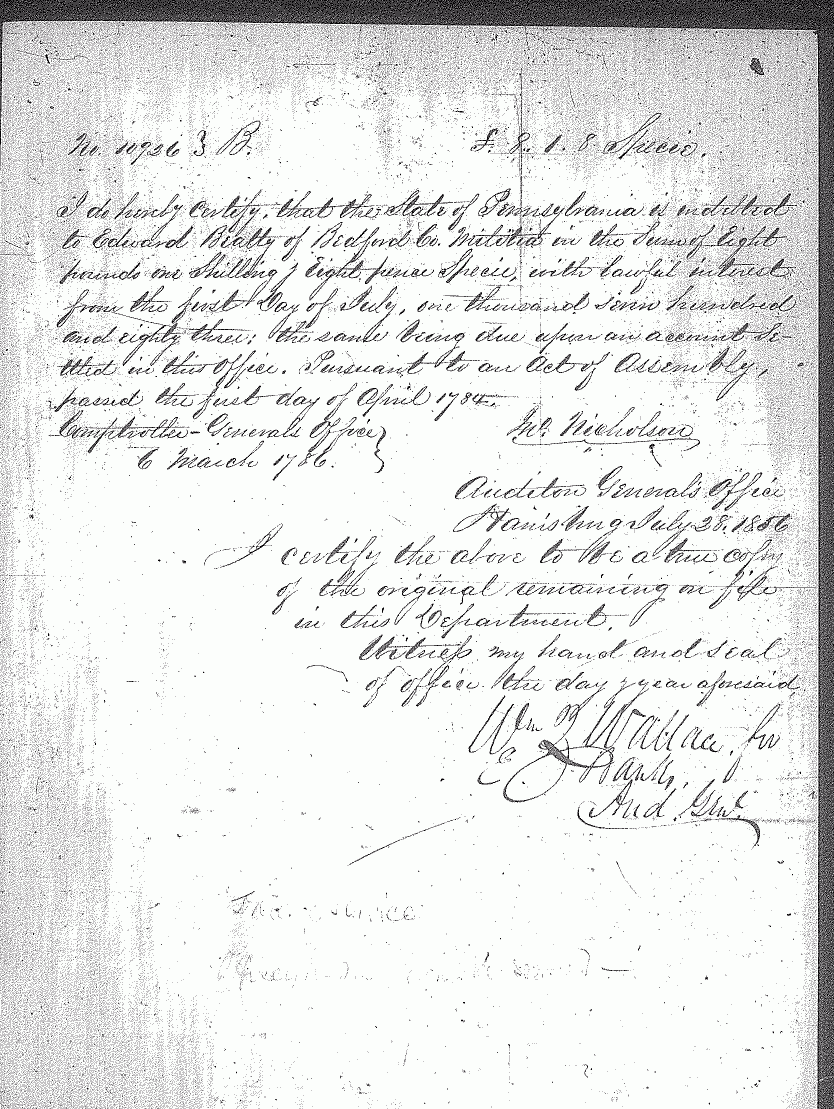 No. 10926 } B. £. 8. 1. 8 Specie.
I do hereby certify, that the State of Pennsylvania is indebted
to Edward Beatty of Bedford Co. Militia in the Sum of Eight
pounds one Shilling & Eight pence Specie, with lawful interest
from the first Day of July, one thousand seven hundred
and eighty three; the same being due upon an account Se-
ttled in this Office. Pursuant to an Act of Assembly,
passed the first day of April 1784.
Comptroller-Generals Office }
6 March 1786.
Jno. Nicholson
Auditor Generals Office
Harrisburg July 28. 1856
I certify the above to be a true copy
of the original remaining on file
in this Department.
Witness my hand and seal
of office the day & year aforesaid,
Wm Wallace, for
E. Banks,
Aud. Genl.
service